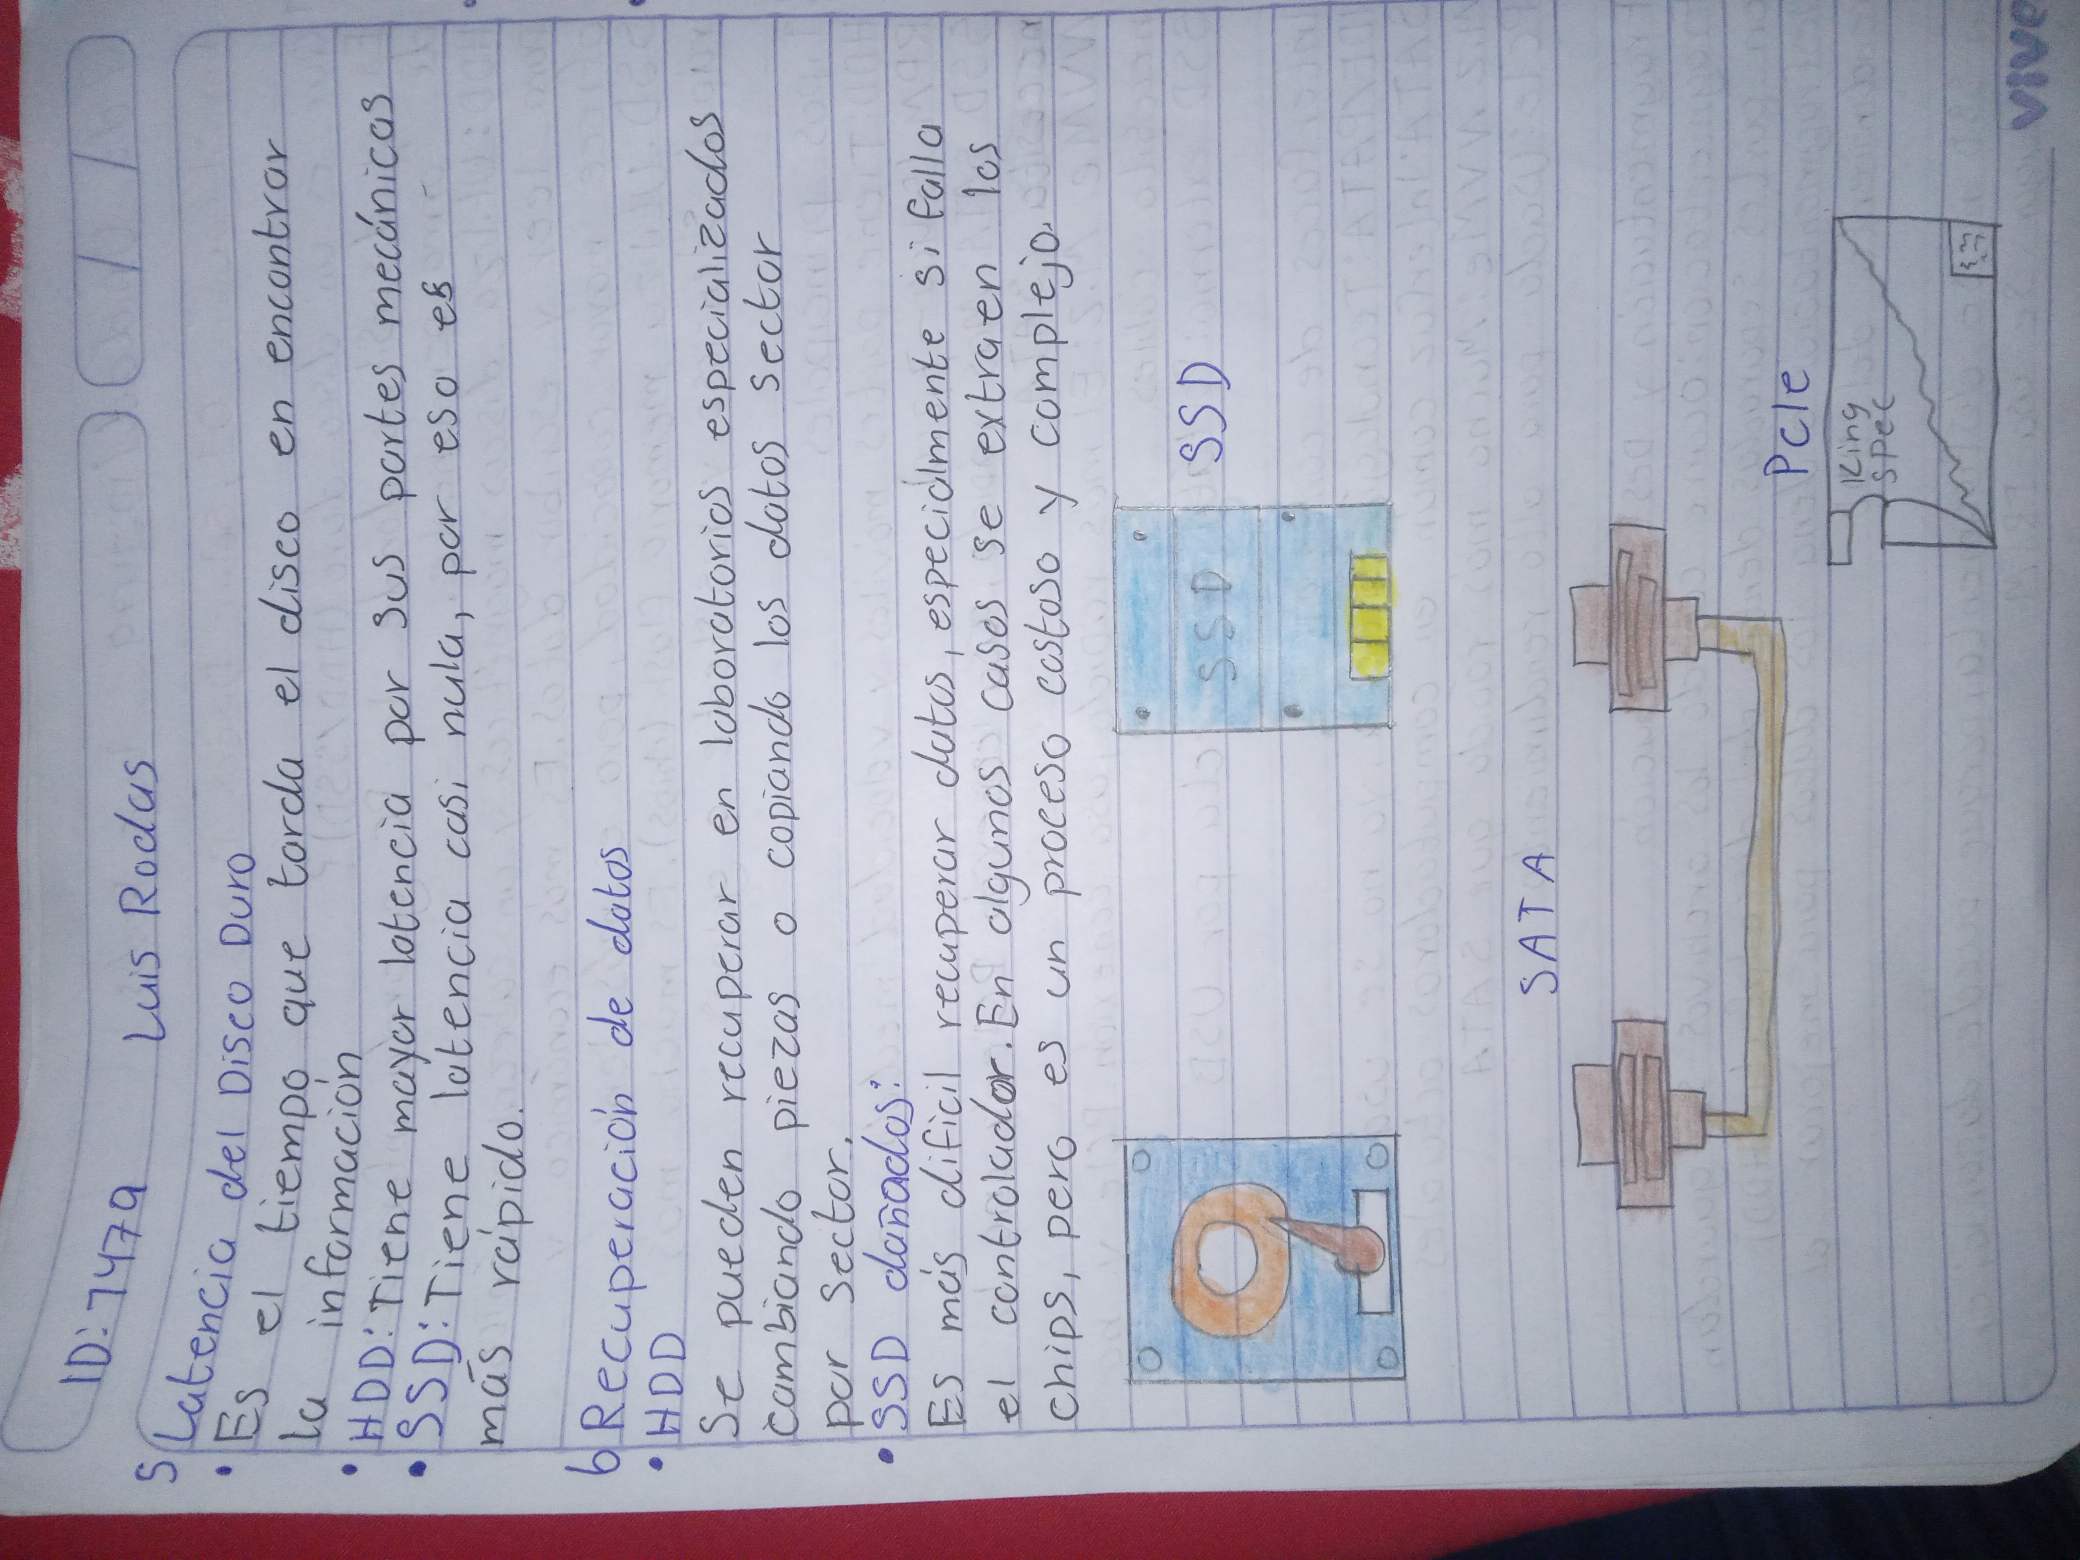 ID: 7479
Luis Rodas
5 Latencia del Disco Duro
• Es el tiempo que tarda el disco en encontrar
la información
• HDD: Tiene mayor latencia por sus partes mecánicas
• SSD: Tiene latencia casi nula, por eso es
más rápido.
6 Recuperación de datos
• HDD
Se pueden recuperar en laboratorios especializados
cambiando piezas o copiando los datos sector
por sector.
• SSD dañados:
Es más dificil recuperar datos, especialmente si falla
el controlador. En algunos casos se extraen los
chips, pero es un proceso costoso y complejo.
SSD
SSD
SATA
PcIe
King
spec
vive